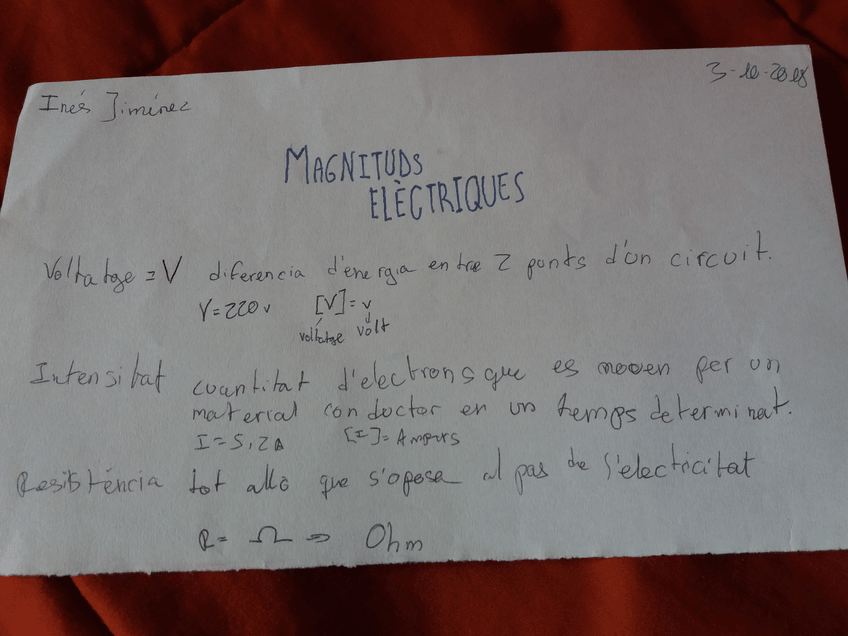 Inés Jiménez
3-10-2018
MAGNITUDS
ELÈCTRIQUES
Voltatge = V diferencia d'energia entre 2 punts d'un circuit.
V=220v [V]=v
voltatge volt
Intensitat cuantitat d'electrons que es mouen per un
material conductor en un temps determinat.
I=5,2A [I]=Ampers
Resisténcia tot allò que s'oposa al pas de l'electicitat
R= Ω => Ohm